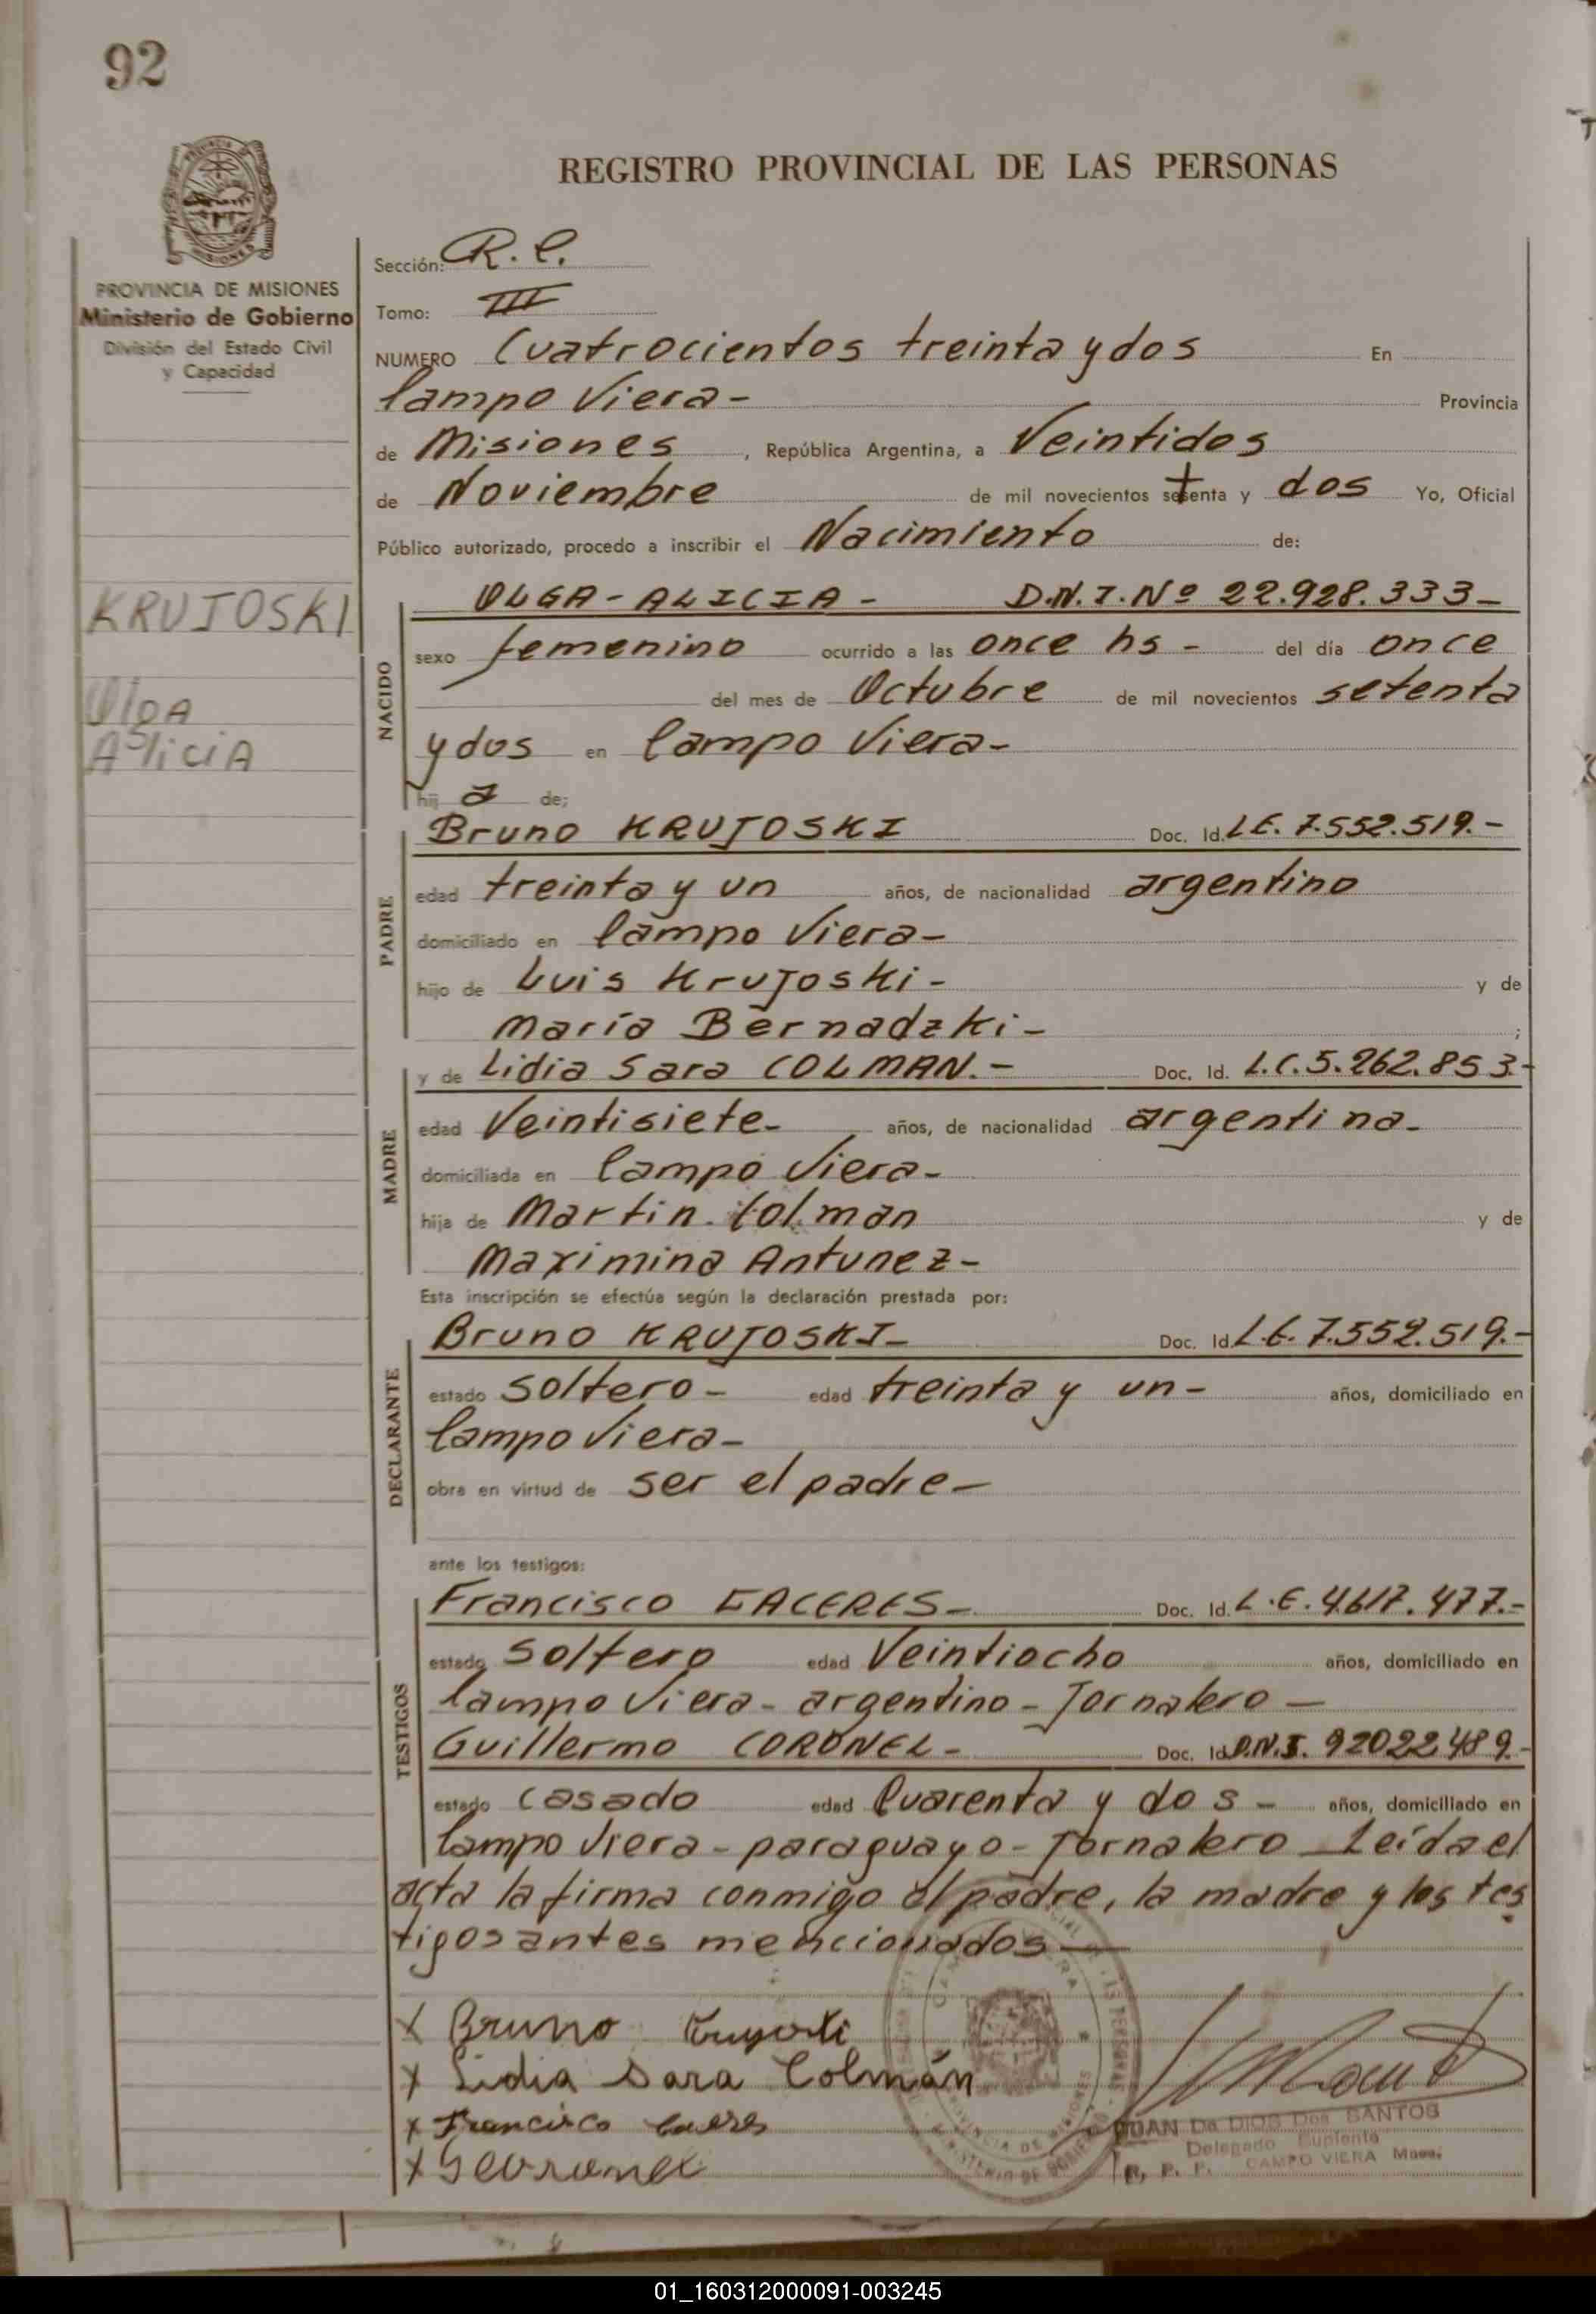 92
REGISTRO PROVINCIAL DE LAS PERSONAS
PROVINCIA DE MISIONES
Ministerio de Gobierno
División del Estado Civil
y Capacidad
KRUJOSKI
Olga
Alicia
Sección: R. C.
Tomo: III
NUMERO Cuatrocientos treinta y dos En
Campo Viera-
Provincia
de Misiones, República Argentina, a Veintidos
de Noviembre de mil novecientos setenta y dos Yo, Oficial
Público autorizado, procedo a inscribir el Nacimiento de:
NACIDO
OLGA-ALICIA- D.N.I. Nº 22.928.333-
sexo femenino ocurrido a las once hs- del día once
del mes de Octubre de mil novecientos setenta
y dos en Campo Viera-
hij a de;
PADRE
Bruno KRUJOSKI Doc. Id. L.E. 7.552.519.-
edad treinta y un años, de nacionalidad argentino
domiciliado en Campo Viera-
hijo de Luis Krujoski- y de
María Bernadzki- ;
MADRE
y de Lidia Sara COLMAN.- Doc. Id. L.C. 5.262.853-
edad Veintisiete- años, de nacionalidad argentina-
domiciliada en Campo Viera-
hija de Martin Colman y de
Maximina Antunez-
Esta inscripción se efectúa según la declaración prestada por:
DECLARANTE
Bruno KRUJOSKI- Doc. Id. L.E. 7.552.519.-
estado soltero- edad treinta y un- años, domiciliado en
Campo Viera-
obra en virtud de ser el padre-
ante los testigos:
TESTIGOS
Francisco CACERES- Doc. Id. L.E. 4.617.477.-
estado soltero edad Veintiocho años, domiciliado en
Campo Viera- argentino- Jornalero-
Guillermo CORONEL- Doc. Id. D.N.I. 92022489.-
estado casado edad Cuarenta y dos- años, domiciliado en
Campo Viera- paraguayo- Jornalero- Leída el
acta la firma conmigo el padre, la madre y los tes
tigos antes mencionados-
X Bruno
X Lidia Sara Colmán
X Francisco Caceres
X
JUAN De DIOS Dos SANTOS
Delegado Suplente
R. P. P. CAMPO VIERA Mnes.
01_160312000091-003245